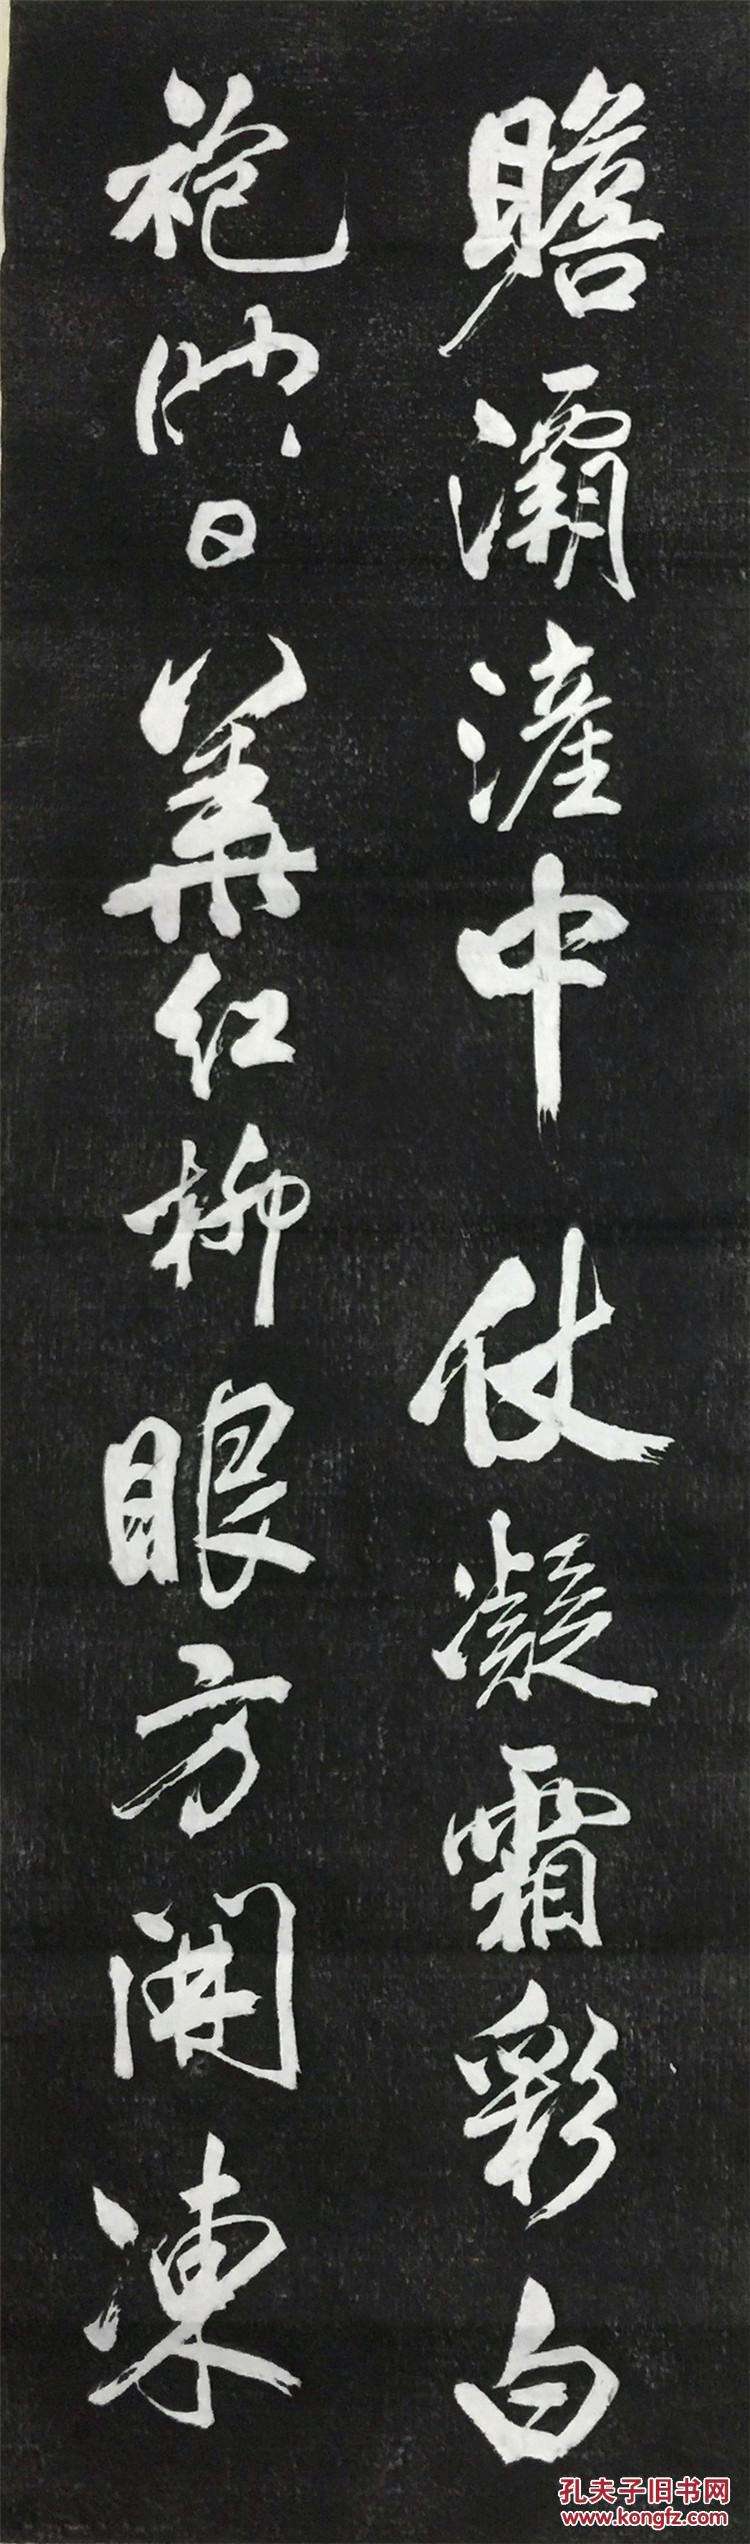 瞻灞浐中仗凝霜彩白
袍映日華红柳眼方開凍
孔夫子旧书网
www.kongfz.com